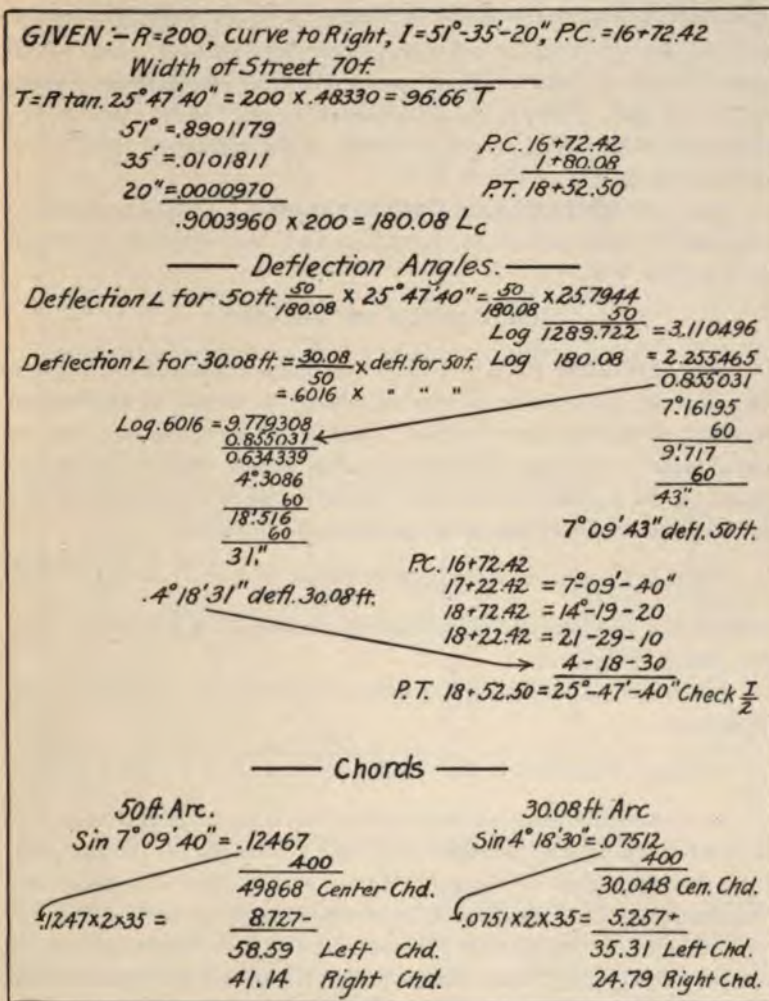 GIVEN:- R=200, curve to Right, I=51°-35'-20", P.C.=16+72.42
Width of Street 70f.
T=R tan. 25°47'40" = 200 x .48330 = 96.66 T
51° = .8901179
35' = .0101811
20" = .0000970
.9003960 x 200 = 180.08 Lc
P.C. 16+72.42
1+80.08
P.T. 18+52.50
Deflection Angles.
Deflection ∠ for 50ft. 50/180.08 x 25°47'40" = 50/180.08 x 25.7944
50
Log 1289.722 = 3.110496
Deflection ∠ for 30.08 ft. = 30.08/50 x defl. for 50f. Log 180.08 = 2.255465
= .6016 x " " "
0.855031
Log .6016 = 9.779308
0.855031
0.634339
4°.3086
60
18'.516
60
31."
.4°18'31" defl. 30.08 ft.
7°.16195
60
9'.717
60
43".
7°09'43" defl. 50ft.
P.C. 16+72.42
17+22.42 = 7°-09'-40"
18+72.42 = 14°-19-20
18+22.42 = 21-29-10
4-18-30
P.T. 18+52.50 = 25°-47'-40" Check I/2
Chords
50ft. Arc.
Sin 7°09'40" = .12467
400
49868 Center Chd.
.1247x2x35 = 8.727-
58.59 Left Chd.
41.14 Right Chd.
30.08ft. Arc
Sin 4°18'30" = .07512
400
30.048 Cen. Chd.
.0751x2x35 = 5.257+
35.31 Left Chd.
24.79 Right Chd.